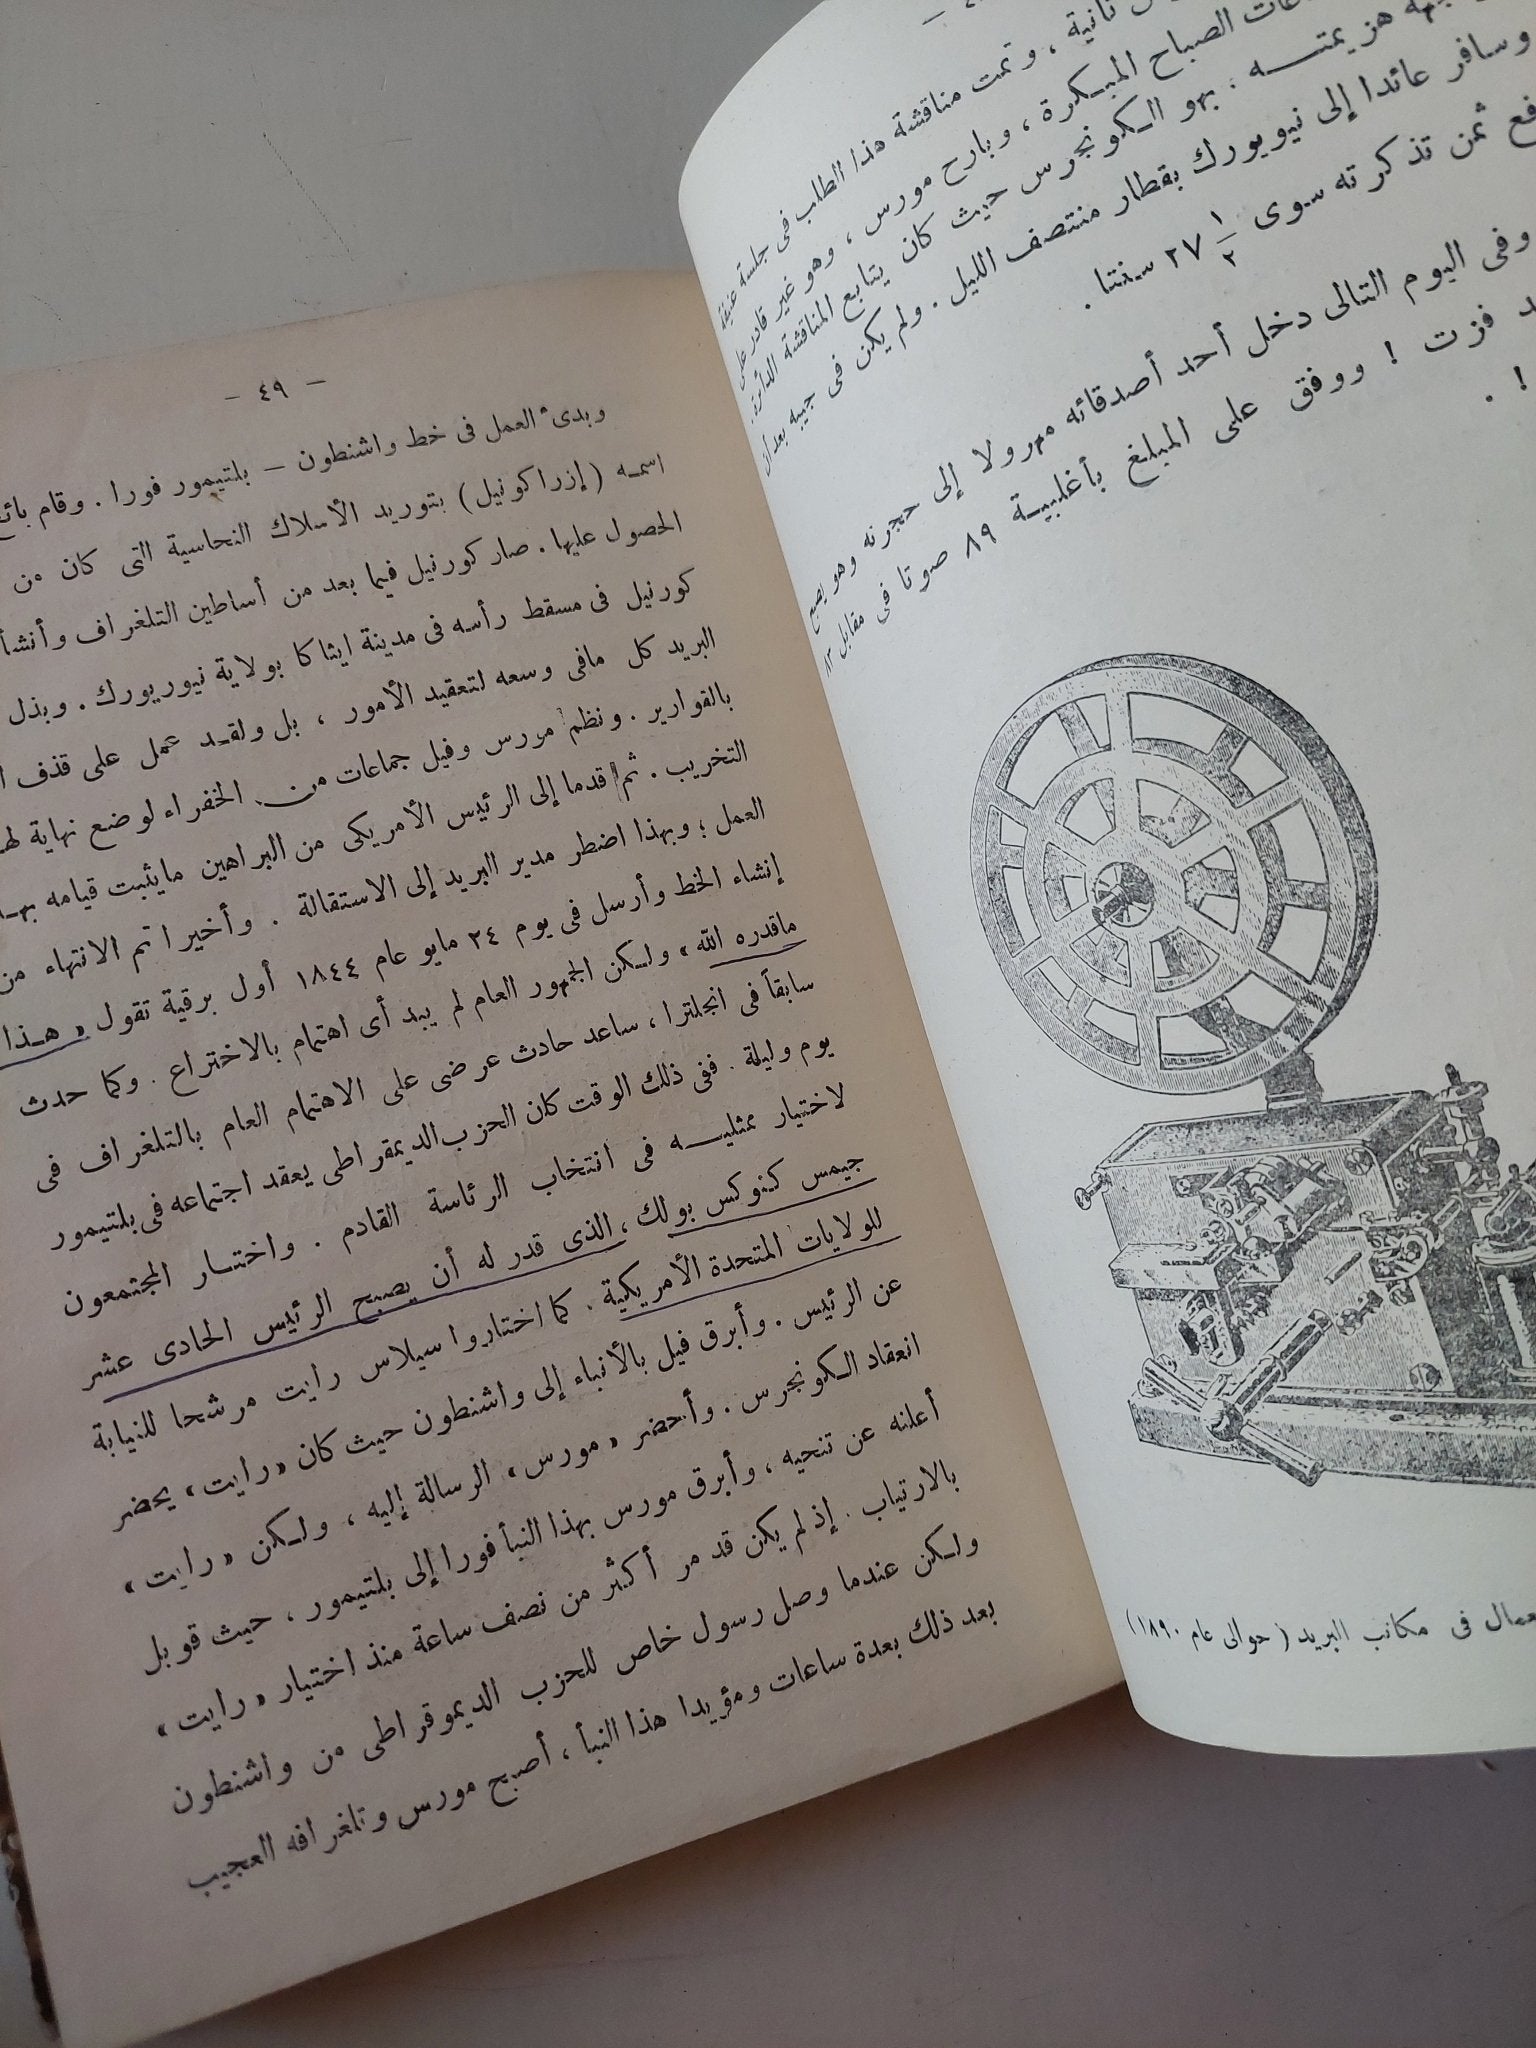 ثانية ، وتمت مناقشة هذا الطلب فى جلسة عنيفة
الصباح المبكرة ، وبارح مورس ، وهو غير قادر على
هزيمته . بهو الكونجرس حيث كان يتابع المناقشة الدائرة .
وسافر عائدا إلى نيويورك بقطار منتصف الليل . ولم يكن فى جيبه بعد أن
ثمن تذكرته سوى ١/٢ ٣٧ سنتا .
وفى اليوم التالى دخل أحد أصدقائه مهرولا إلى حجرته وهو يصيح
فزت ! ووفق على المبلغ بأغلبية ٨٩ صوتا فى مقابل ٨٣
! .
فى مكاتب البريد ( حوالى عام ١٨٩٠)
— ٤٩ —
وبدىء العمل فى خط واشنطون — بلتيمور فورا . وقام
اسمه (إزرا كونيل) بتوريد الأسلاك النحاسية التى كان من
الحصول عليها . صار كورنيل فيما بعد من أساطين التلغراف وأنشأ
كورنيل فى مسقط رأسه فى مدينة ايثاكا بولاية نيويورك . وبذل
البريد كل مافى وسعه لتعقيد الأمور ، بل ولقد عمل على قذف
بالقوارير . ونظم مورس وفيل جماعات من الخفراء لوضع نهاية
التخريب . ثم قدما إلى الرئيس الأمريكى من البراهين مايثبت قيامه
العمل ؛ وبهذا اضطر مدير البريد إلى الاستقالة . وأخيرا تم الانتهاء من
إنشاء الخط وأرسل فى يوم ٢٤ مايو عام ١٨٤٤ أول برقية تقول « هذا
ماقدره الله » ولكن الجمهور العام لم يبد أى اهتمام بالاختراع . وكما حدث
سابقاً فى انجلترا ، ساعد حادث عرضى على الاهتمام العام بالتلغراف فى
يوم وليلة . ففى ذلك الوقت كان الحزب الديمقراطى يعقد اجتماعه فى بلتيمور
لاختيار ممثليه فى انتخاب الرئاسة القادم . واختار المجتمعون
جيمس كنوكس بولك ، الذى قدر له أن يصبح الرئيس الحادى عشر
للولايات المتحدة الأمريكية . كما اختاروا سيلاس رايت مرشحا للنيابة
عن الرئيس . وأبرق فيل بالأنباء إلى واشنطون حيث كان « رايت » يحضر
انعقاد الكونجرس . وأحضر « مورس » الرسالة إليه ، ولكن « رايت »
أعلنه عن تنحيه ، وأبرق مورس بهذا النبأ فورا إلى بلتيمور ، حيث قوبل
بالارتياب . إذ لم يكن قد مر أكثر من نصف ساعة منذ اختيار « رايت »
ولكن عندما وصل رسول خاص للحزب الديموقراطى من واشنطون
بعد ذلك بعدة ساعات ومؤيدا هذا النبأ ، أصبح مورس وتلغرافه العجيب